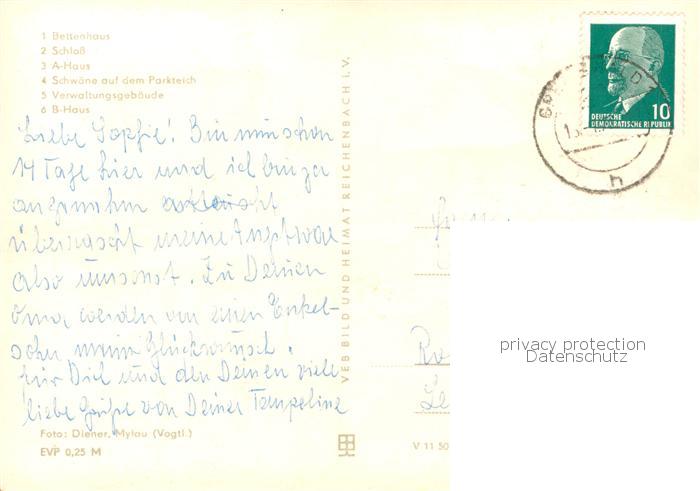 1 Bettenhaus
2 Schloß
3 A-Haus
4 Schwäne auf dem Parkteich
5 Verwaltungsgebäude
6 B-Haus
Liebe Sophie! Bin nun schon
14 Tage hier und ich bin ja
angenehm
überrascht meine Angst war
also umsonst. Zu Deinen
Oma, werden von einen Enkel-
sohn meinn Glückwunsch.
für Dich und den Deinen viele
liebe Grüße von Deiner
Foto: Diener, Mylau (Vogtl.)
EVP 0,25 M
VEB BILD UND HEIMAT REICHENBACH I. V.
V 11 50
DEUTSCHE
DEMOKRATISCHE REPUBLIK
10
h
privacy protection
Datenschutz